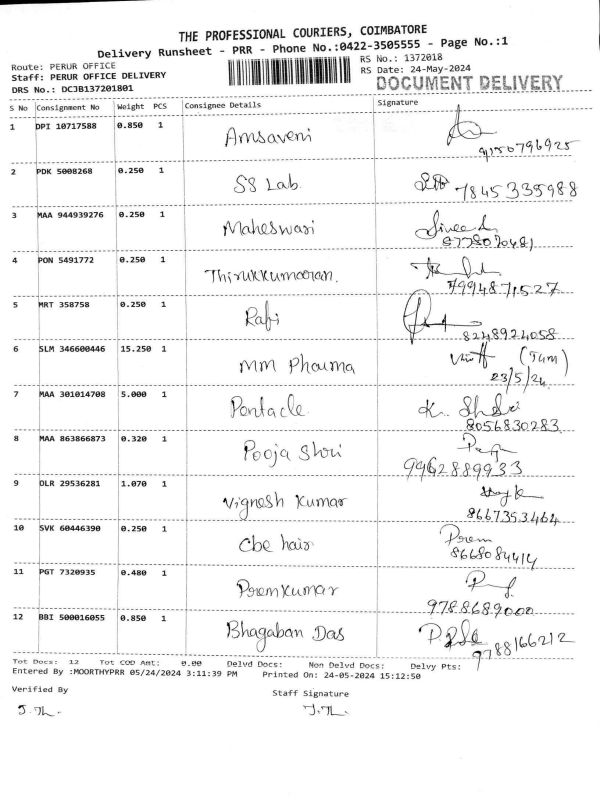 THE PROFESSIONAL COURIERS, COIMBATORE
Delivery Runsheet - PRR - Phone No.:0422-3505555 - Page No.:1
Route: PERUR OFFICE RS No.: 1372018
Staff: PERUR OFFICE DELIVERY RS Date: 24-May-2024
DRS No.: DCJB137201801 DOCUMENT DELIVERY
S No Consignment No Weight PCS Consignee Details Signature
1 DPI 10717588 0.850 1 Amsaveni
9150796925
2 PDK 5008268 0.250 1 SS Lab. 7845335988
3 MAA 944939276 0.250 1 Maheswari
8778070481
4 PON 5491772 0.250 1 Thirukkumaran.
7994871527
5 MRT 358758 0.250 1 Rafi
8248924058
6 SLM 346600446 15.250 1 MM Pharma
23/5/24
7 MAA 301014708 5.000 1 Pentacle.
8056830283
8 MAA 863866873 0.320 1 Pooja Shri
9962889933
9 DLR 29536281 1.070 1 Vignesh Kumar
8667353464
10 SVK 60446390 0.250 1 Cbe hair Prem
8668084414
11 PGT 7320935 0.480 1 Premkumar
9788689000
12 BBI 500016055 0.850 1 Bhagaban Das
9788166212
Tot Docs: 12 Tot COD Amt: 0.00 Delvd Docs: Non Delvd Docs: Delvy Pts:
Entered By :MOORTHYPRR 05/24/2024 3:11:39 PM Printed On: 24-05-2024 15:12:50
Verified By Staff Signature